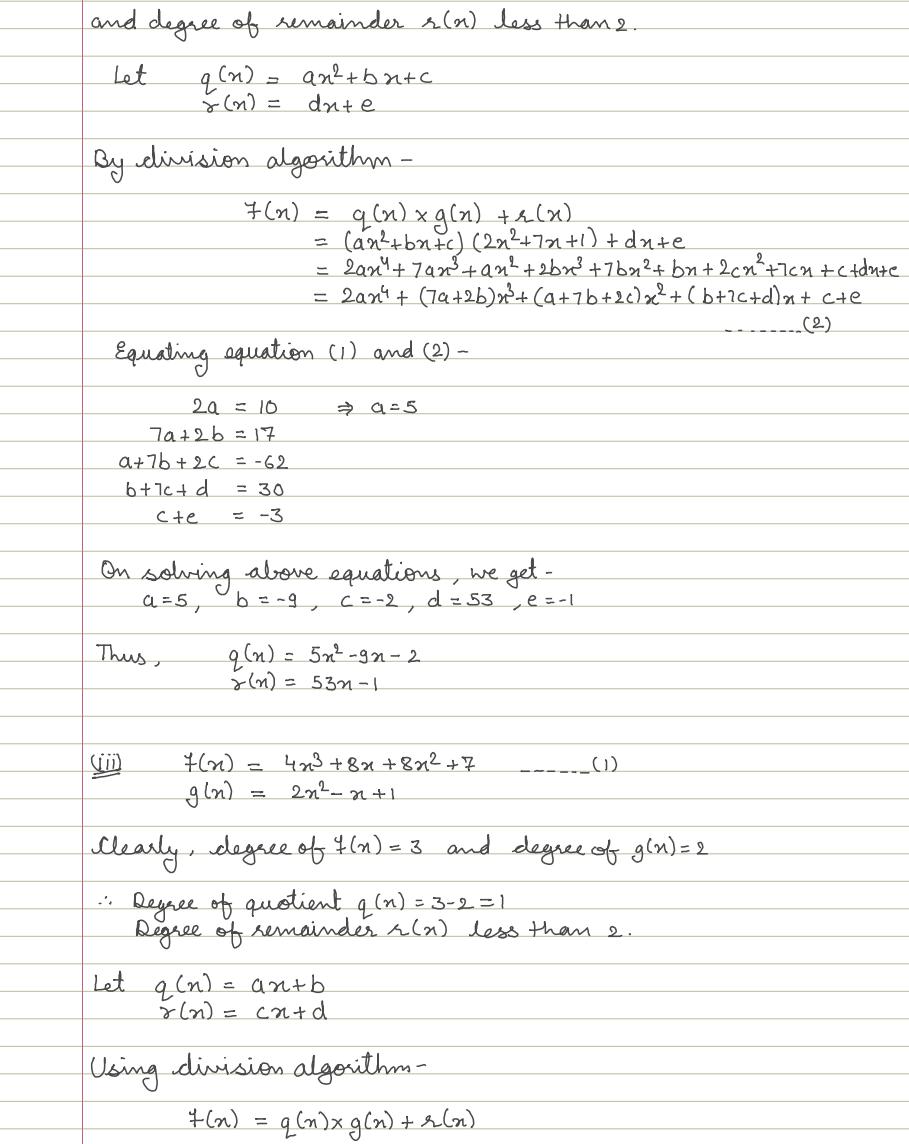 and degree of remainder r(x) less than 2.
Let q(x) = ax²+bx+c
r(x) = dx+e
By division algorithm –
f(x) = q(x) × g(x) + r(x)
= (ax²+bx+c) (2x²+7x+1) + dx+e
= 2ax⁴+7ax³+ax²+2bx³+7bx²+bx+2cx²+7cx+c+dx+e
= 2ax⁴ + (7a+2b)x³+(a+7b+2c)x²+(b+7c+d)x+ c+e
--------(2)
Equating equation (1) and (2) –
2a = 10 ⇒ a=5
7a+2b = 17
a+7b+2c = -62
b+7c+d = 30
c+e = -3
On solving above equations, we get –
a=5, b=-9, c=-2, d=53, e=-1
Thus, q(x) = 5x²-9x-2
r(x) = 53x-1
(iii) f(x) = 4x³+8x+8x²+7 ------(1)
g(x) = 2x²-x+1
Clearly, degree of f(x)=3 and degree of g(x)=2
∴ Degree of quotient q(x) = 3-2=1
Degree of remainder r(x) less than 2.
Let q(x) = ax+b
r(x) = cx+d
Using division algorithm –
f(x) = q(x)×g(x)+r(x)